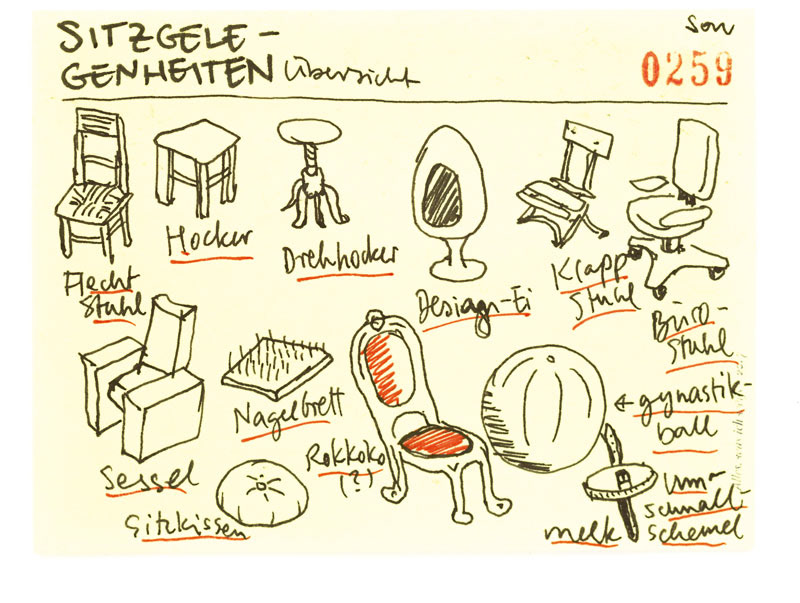 SITZGELE-
GENHEITEN Übersicht
Son
0259
Flecht
Stuhl
Hocker
Drehhocker
Design-Ei
Klapp
Stuhl
Büro-
Stuhl
Sessel
Nagelbrett
Rokkoko
(?)
← gynastik-
ball
Sitzkissen
melk
um-
schnall-
schemel